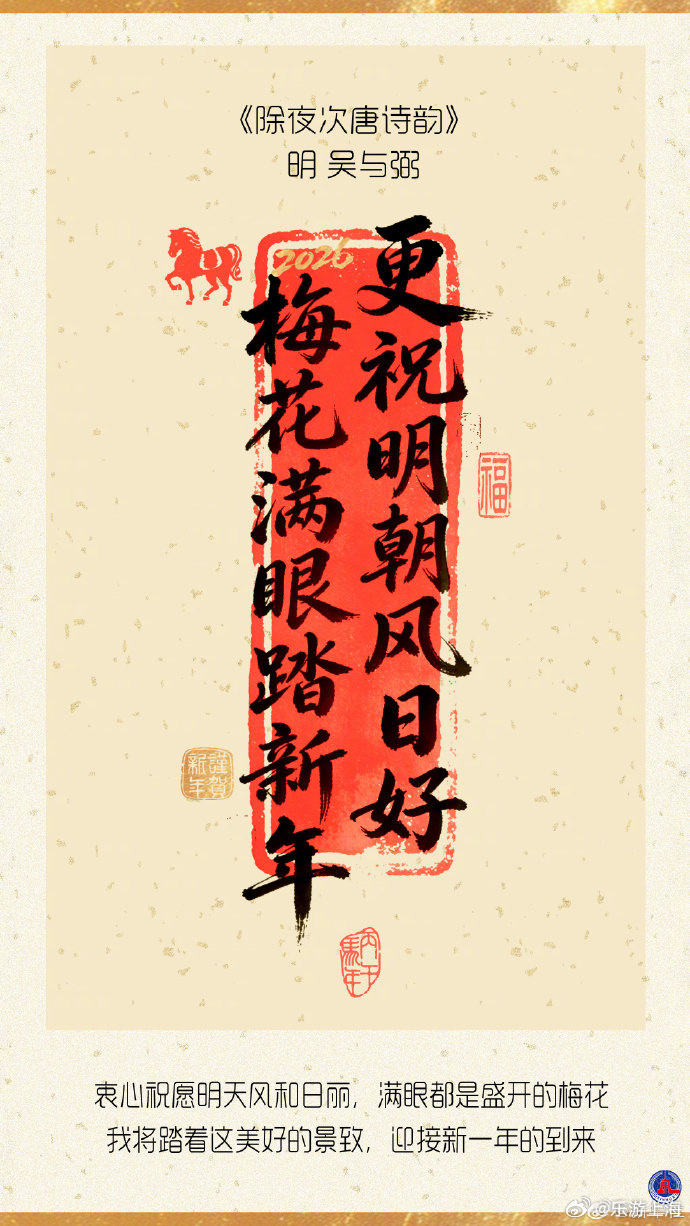 《除夜次唐诗韵》
明 吴与弼
2026
更祝明朝风日好
梅花满眼踏新年
福
謹賀
新年
丙午
馬年
衷心祝愿明天风和日丽，满眼都是盛开的梅花
我将踏着这美好的景致，迎接新一年的到来
@乐游上海